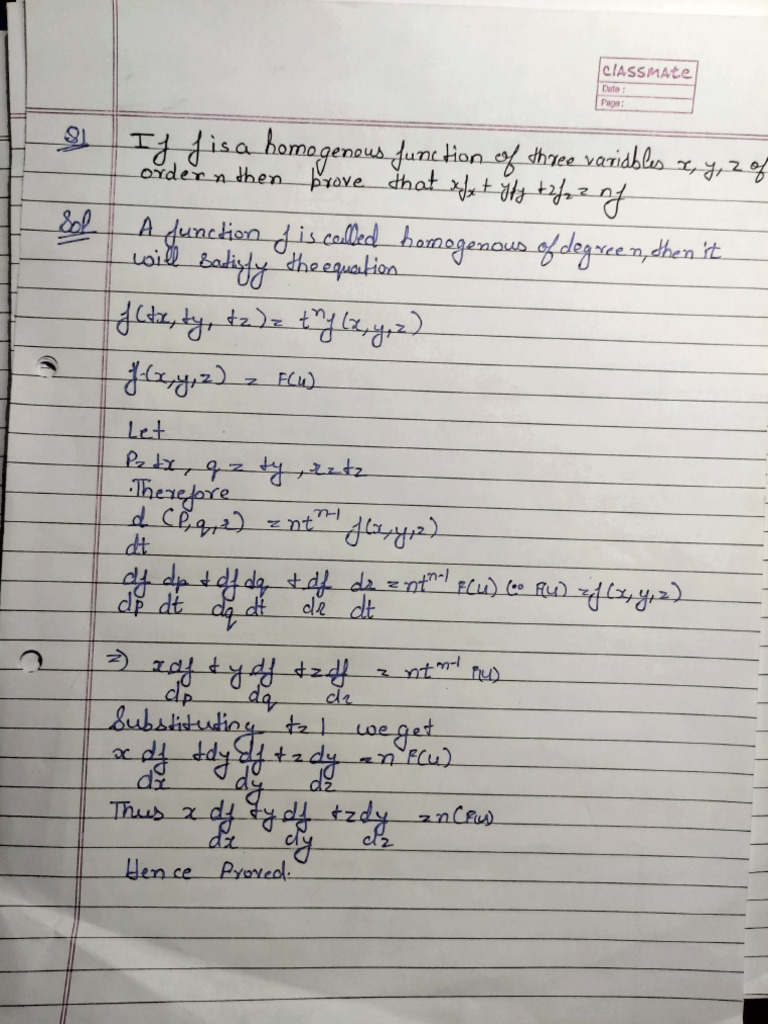 classmate
Date :
Page :
Q1 If f is a homogenous function of three variables x, y, z of
order n then prove that xfx + yfy + zfz = nf
Sol A function f is called homogenous of degree n, then it
will satisfy the equation
f(tx, ty, tz) = t^n f(x,y,z)
f(x,y,z) = F(u)
Let
P = tx, q = ty, r = tz
Therefore
d (P,q,r) = nt^(n-1) f(x,y,z)
dt
df dp + df dq + df dr = nt^(n-1) F(u) (∵ F(u) = f(x,y,z)
dp dt dq dt dr dt
⇒) x df + y df + z df = nt^(n-1) F(u)
dp dq dr
Substituting t = 1 we get
x df + dy df + z dy = n F(u)
dx dy dz
Thus x df + y df + z dy = n(F(u)
dx dy dz
Hence Proved.